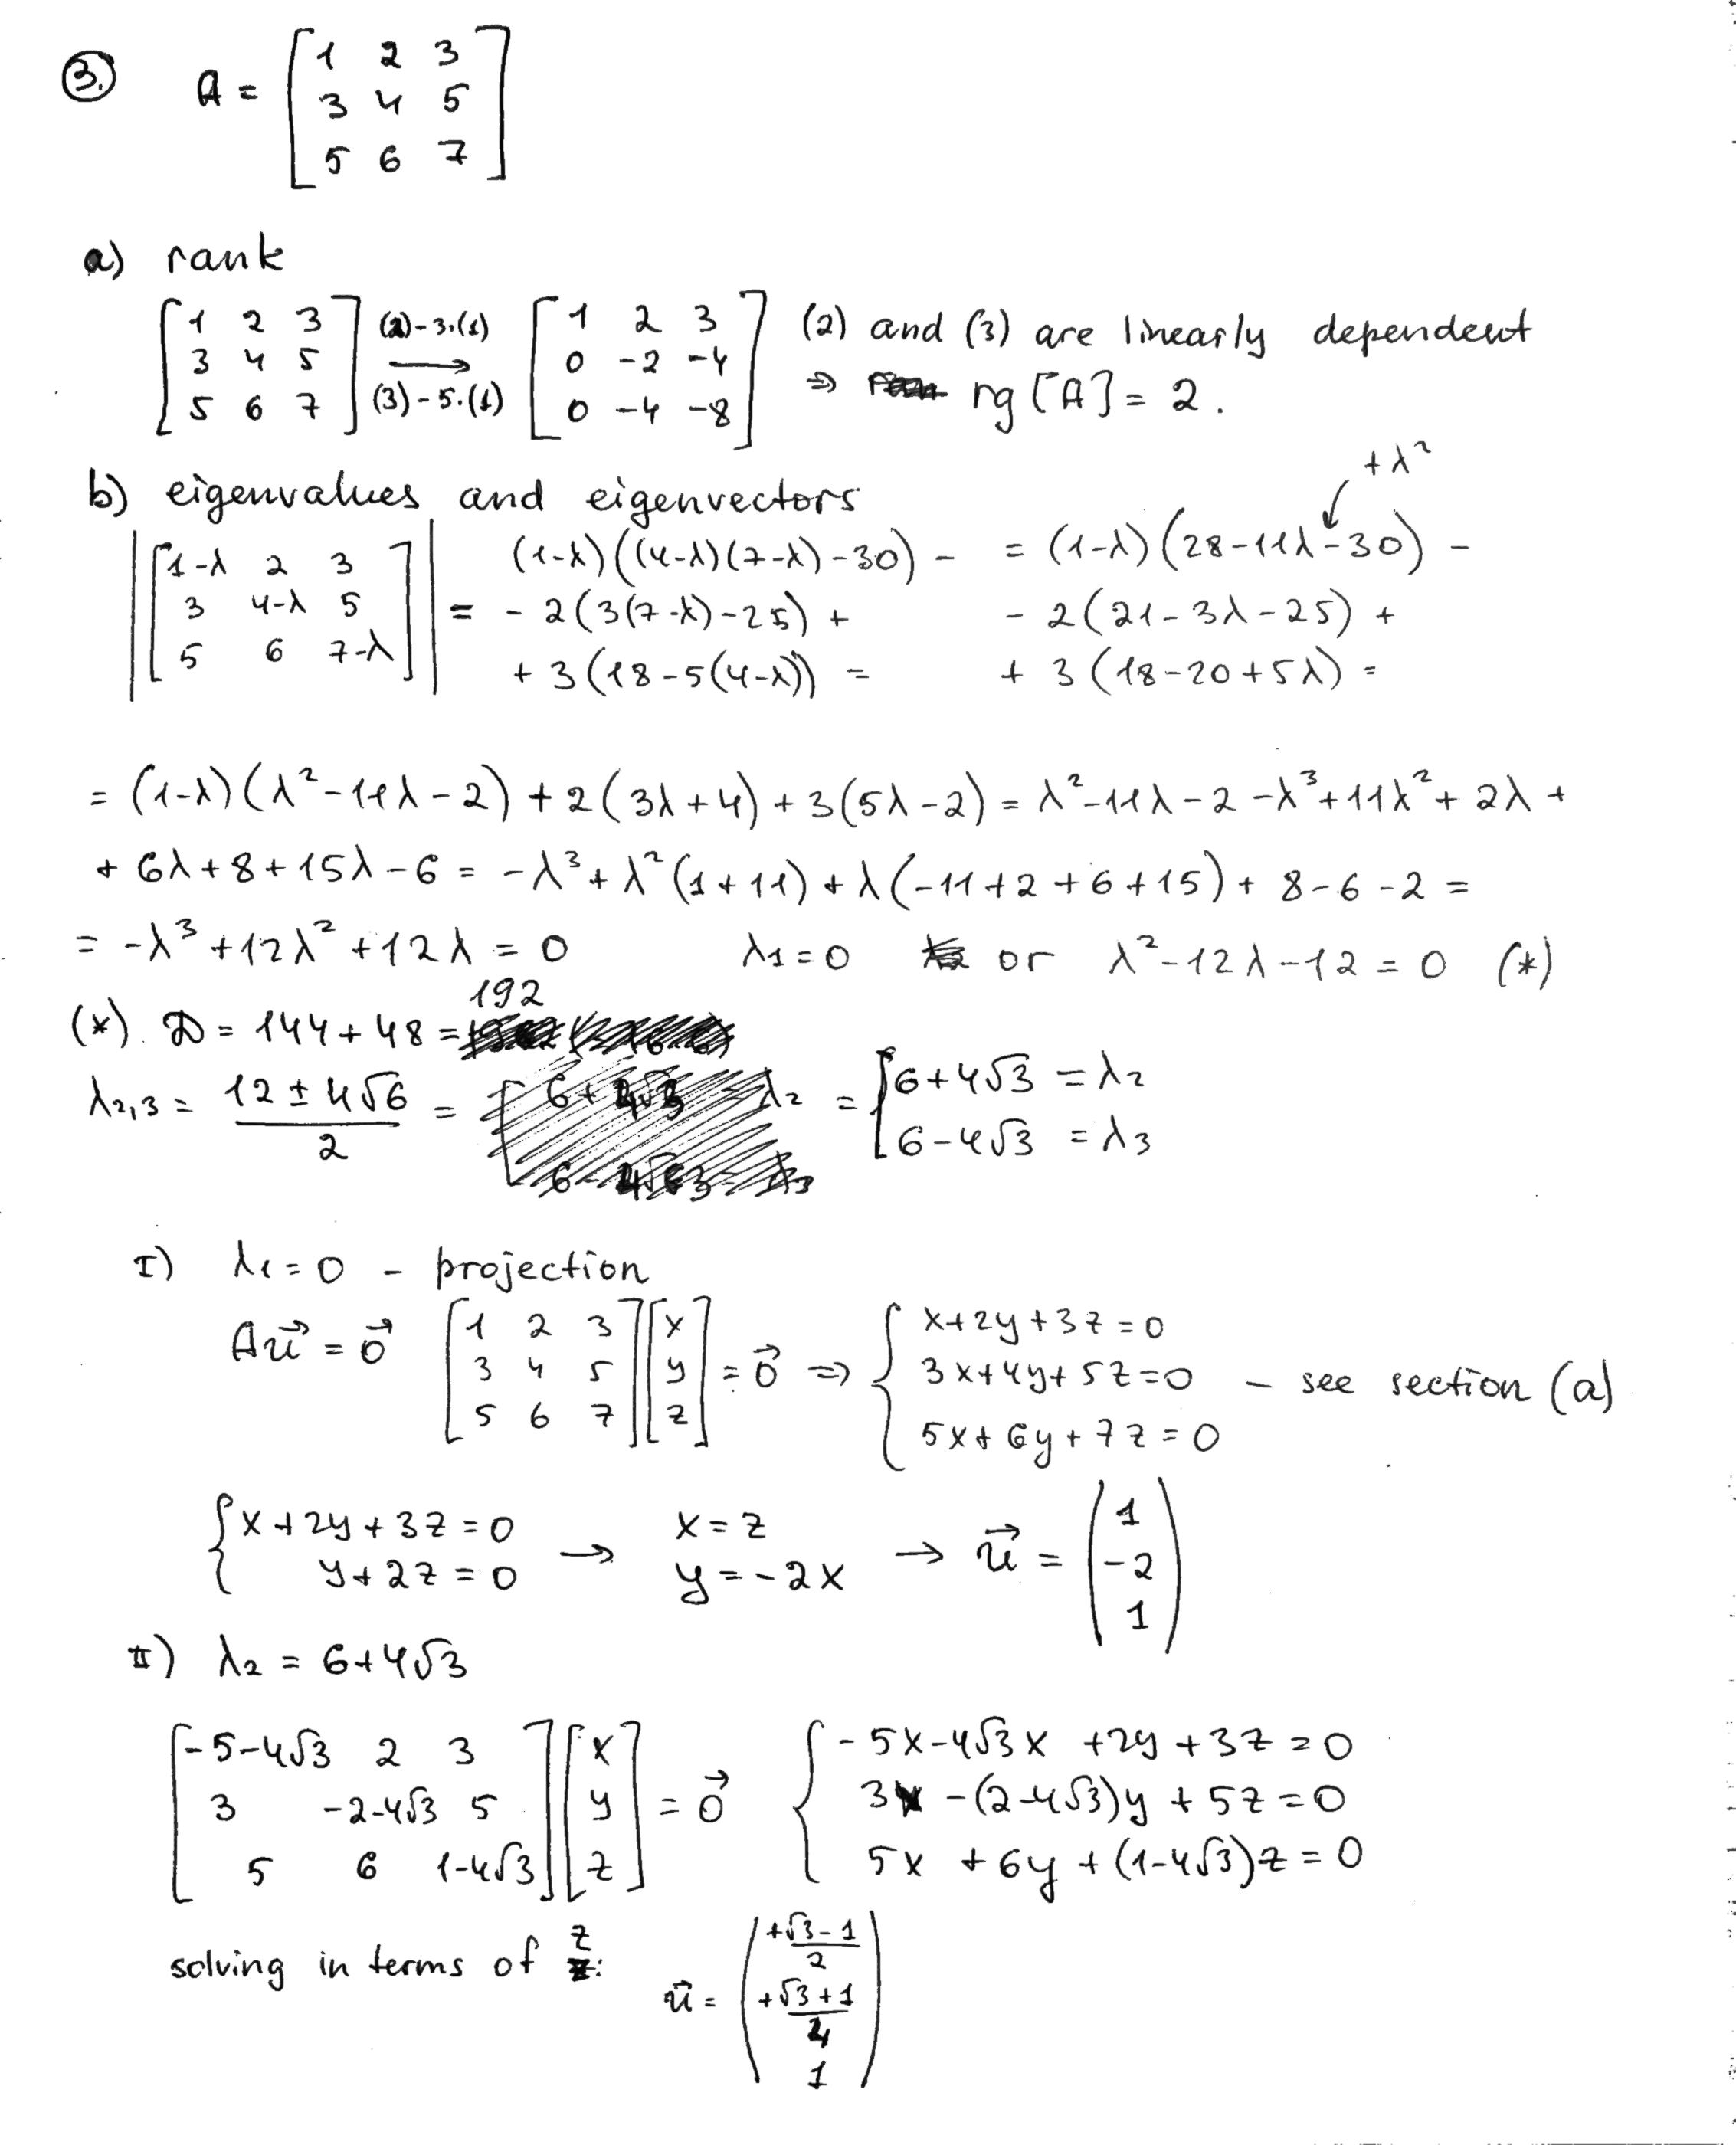 3. A = [1 2 3; 3 4 5; 5 6 7]
a) rank
[1 2 3; 3 4 5; 5 6 7] (2)-3·(1) → (3)-5·(1) [1 2 3; 0 -2 -4; 0 -4 -8] (2) and (3) are linearly dependent
⇒ rg[A] = 2.
b) eigenvalues and eigenvectors
+λ²
|[1-λ 2 3; 3 4-λ 5; 5 6 7-λ]| = (1-λ)((4-λ)(7-λ)-30) -
- 2(3(7-λ)-25) +
+ 3(18-5(4-λ)) =
= (1-λ)(28-11λ-30) -
- 2(21-3λ-25) +
+ 3(18-20+5λ) =
= (1-λ)(λ²-11λ-2) + 2(3λ+4) + 3(5λ-2) = λ²-11λ-2-λ³+11λ²+2λ+
+ 6λ+8+15λ-6 = -λ³+λ²(1+11)+λ(-11+2+6+15)+8-6-2 =
= -λ³+12λ²+12λ = 0 λ1=0 or λ²-12λ-12=0 (*)
(*). D = 144+48 = 192
λ2,3 = (12±4√6)/2 = = {6+4√3 = λ2; 6-4√3 = λ3
I) λ1=0 - projection
Au⃗ = 0⃗ [1 2 3; 3 4 5; 5 6 7][x; y; z] = 0⃗ ⇒ {x+2y+3z=0; 3x+4y+5z=0; 5x+6y+7z=0 - see section (a)
{x+2y+3z=0; y+2z=0 → x=z; y=-2x → u⃗ = (1; -2; 1)
II) λ2 = 6+4√3
[-5-4√3 2 3; 3 -2-4√3 5; 5 6 1-4√3][x; y; z] = 0⃗ {-5x-4√3x+2y+3z=0; 3x-(2-4√3)y+5z=0; 5x+6y+(1-4√3)z=0
solving in terms of z: u⃗ = ((+√3-1)/2; (+√3+1)/4; 1)